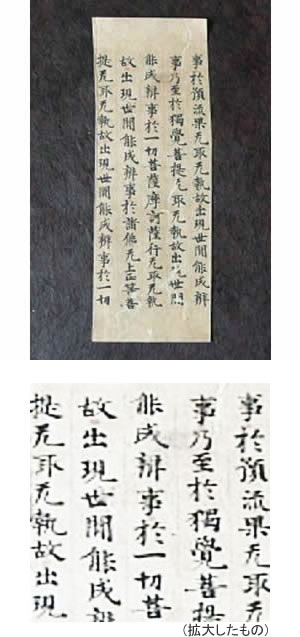 事於預流果无取无執故出現世間能成辨
事乃至於獨覺菩提无取无執故出現世間
能成辨事於一切菩薩摩訶薩行无取无執
故出現世間能成辨事於諸佛无上正等菩
提无取无執故出現世間能成辨事於一切
事於預流果无取无
事乃至於獨覺菩提
能成辨事於一切菩
故出現世間能成辨
提无取无執故出現
(拡大したもの)